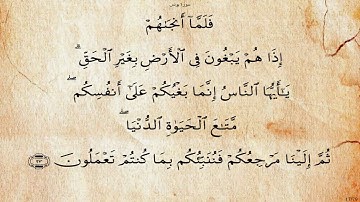 سورة يونس
فَلَمَّآ أَنجَىٰهُمْ
إِذَا هُمْ يَبْغُونَ فِى ٱلْأَرْضِ بِغَيْرِ ٱلْحَقِّ ۗ
يَـٰٓأَيُّهَا ٱلنَّاسُ إِنَّمَا بَغْيُكُمْ عَلَىٰٓ أَنفُسِكُم ۖ
مَّتَـٰعَ ٱلْحَيَوٰةِ ٱلدُّنْيَا ۖ
ثُمَّ إِلَيْنَا مَرْجِعُكُمْ فَنُنَبِّئُكُم بِمَا كُنتُمْ تَعْمَلُونَ ﴿٢٣﴾